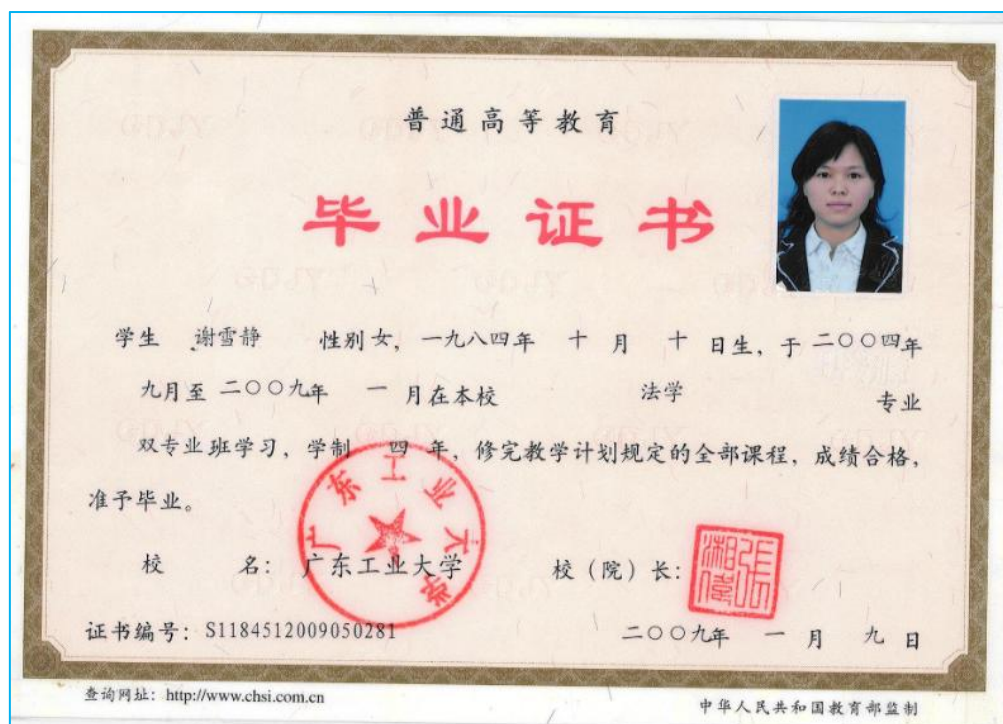 普通高等教育
毕业证书
学生 谢雪静 性别 女，一九八四年 十 月 十 日生，于 二〇〇四年
九月至 二〇〇九年 一 月在本校 法学 专业
双专业班学习，学制 四 年，修完教学计划规定的全部课程，成绩合格，
准予毕业。
广东工业大学
校 名：广东工业大学 校（院）长：
张湘伟
证书编号：S1184512009050281 二〇〇九年 一 月 九 日
查询网址：http://www.chsi.com.cn 中华人民共和国教育部监制